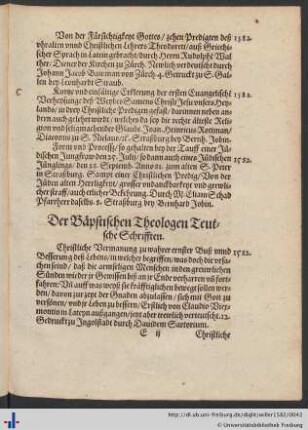 Von der Fürsichtigkeyt Gottes / zehen Predigten deß 1582.
vhralten vnnd Christlichen Lehrers Theodoreti / auß Griechi-
scher Sprach in Latein gebracht / durch Herrn Rudolph Wal-
ther / Diener der Kirchen zu Zürch. Newlich verdeutscht durch
Johann Jacob Bawman von Zürch 4. Getruckt zu S. Gal-
len bey Leonhardt Straub.
Kurtze vnd einfältige Erklerung der ersten Euangelischen 1582.
Verheissunge deß Weybes Samens Christi Jesu vnsers Hey-
lands / in drey Christliche Predigen gefast / darinnen neben an-
derm auch gelehrt wirdt / welches da sey die rechte älteste Reli-
gion vnd seligmachender Glaub. Joan. Heinricus Rottman /
Diaconus zu S. Nicolaus / 8. Strasburg bey Bernh. Jobin.
Form vnd Process / so gehalten bey der Tauff einer Jü-
dischen Jungfraw den 25. Julij / so dann auch eines Jüdischen 1582.
Jünglings / den 22. Septemb. Anno 82. zum alten S. Peter
in Strasburg. Sampt einer Christlichen Predig / Von der
Jüden alten Herrligkeit / grosser vndanckbarkeyt vnd grewli-
cher straff / auch entlicher Bekehrung. Durch M. Eliam Schad
Pfarrherr daselbs. 8. Strasburg bey Bernhard Jobin.
Der Bäpstischen Theologen Teut-
sche Schrifften.
Christliche Vermanung zu wahrer ernster Buß vnnd 1582.
Besserung deß Lebens / in welcher begriffen / was doch die vrsa-
chen seind / daß die armseligen Menschen in den grewlichen
Sünden wider jr Gewissen biß an jr Ende verharren vñ fort-
fahren: Vñ auff was weyß sie kräfftiglichen bewegt sollen wer-
den / davon zur zeyt der Gnaden abzulassen / sich mit Gott zu
versönen / vnd jr Leben zu bessern / Erstlich von Claudio Viex-
montio in Latein außgangen / jetzt aber trewlich verteutscht. 12.
Gedruckt zu Ingolstadt durch Dauidem Sartorium.
E ij Christliche
http://dl.ub.uni-freiburg.de/diglit/willer1582/0042
© Universitätsbibliothek Freiburg
UNI
FREIBURG